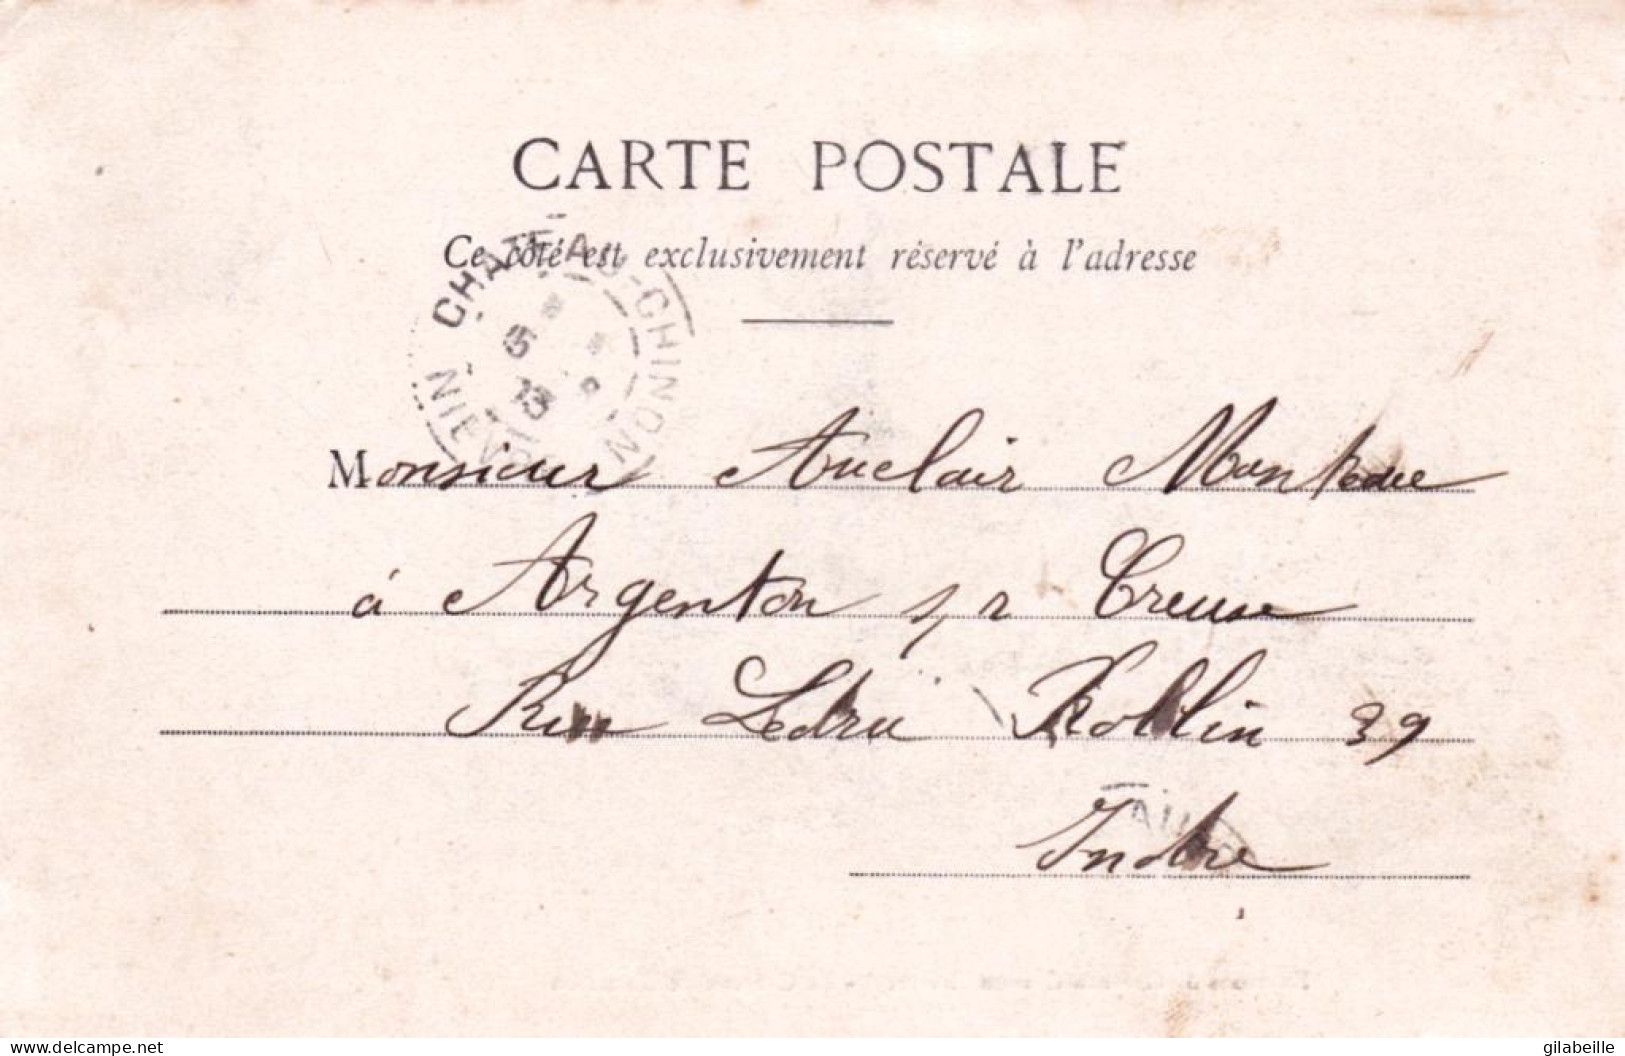 CARTE POSTALE
Ce côté est exclusivement réservé à l'adresse
CHATEAU-CHINON
NIEVRE
Monsieur Auclair
à Argenton s/r Creuse
Rue Ledru Rollin 39
Indre
www.delcampe.net
gilabeille